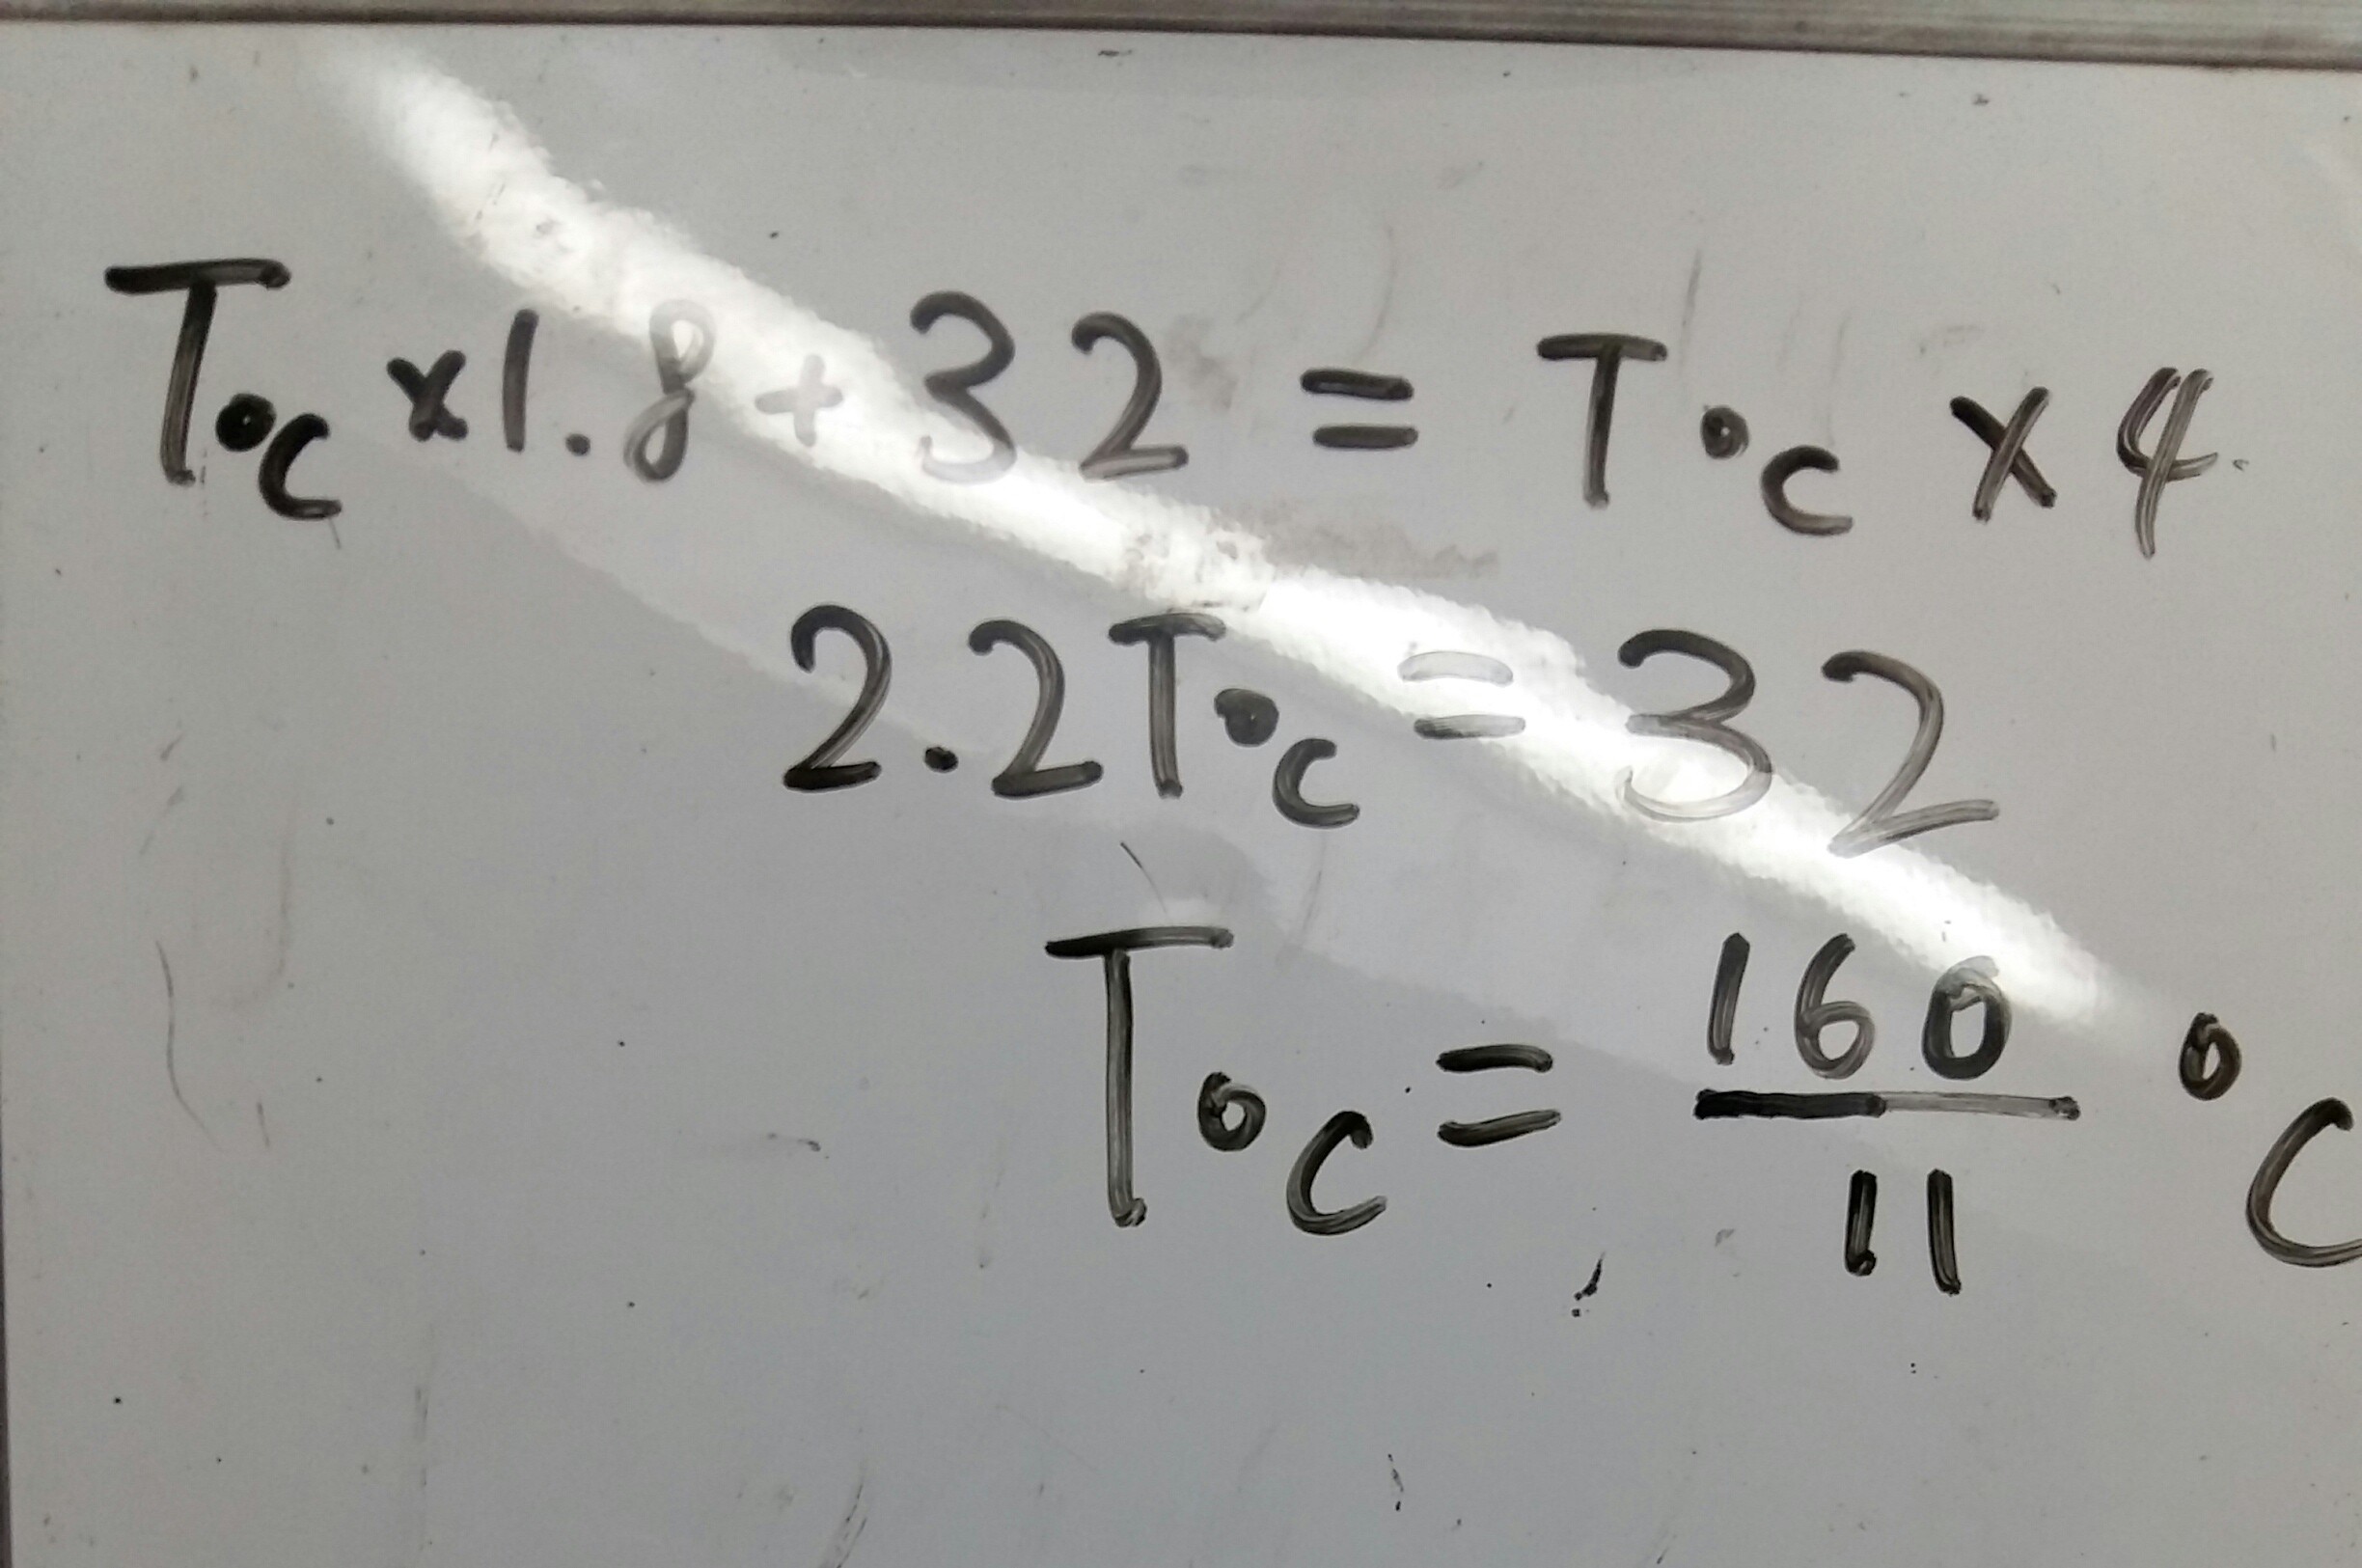 T°c x 1.8 + 32 = T°c x 4
2.2T°c = 32
T°c = 160/11 °C